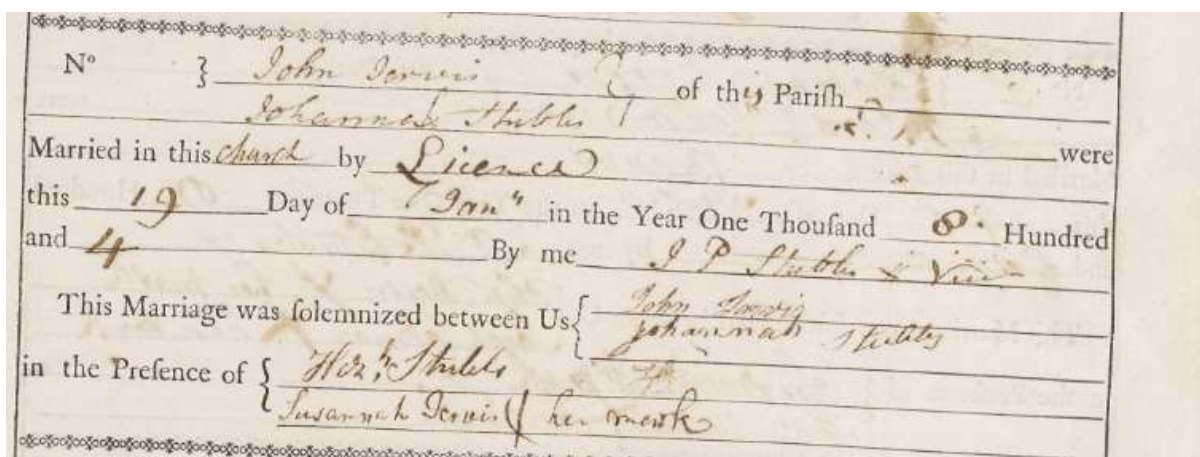 No } John Jervis } of this Parish
Johannah Stubbs
were
Married in this church by Licence
this 19 Day of Jany in the Year One Thouſand 8 Hundred
and 4 By me J P Stubbs Vicr
This Marriage was ſolemnized between Us { John Jervis
Johannah Stubbs
in the Preſence of { Hezh Stubbs
Susannah Jervis her mark